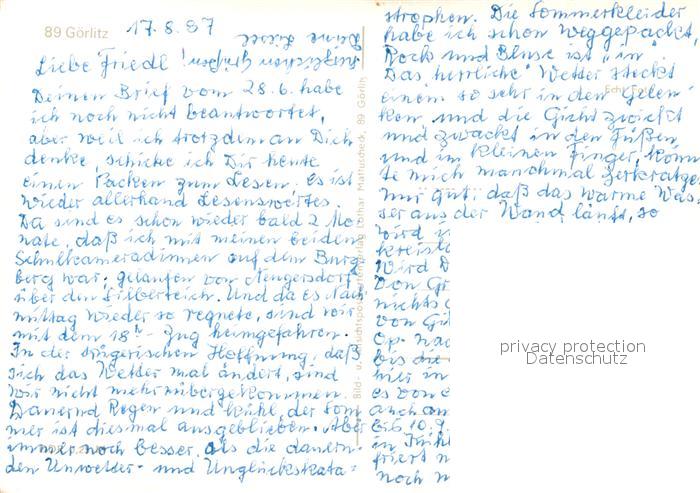 89 Görlitz 17.8.87
Liebe Friedl!
Deinen Brief vom 28.6. habe
ich noch nicht beantwortet,
aber weil ich trotzdem an Dich
denke, schicke ich Dir heute
einen Packen zum Lesen. Es ist
wieder allerhand Lesenswertes.
Da sind es schon wieder bald 2 Mo
nate, daß ich mit meinen beiden
Schulkameradinnen auf dem Burg
berg war; gelaufen von Neugersdorf
über den Silberteich. Und da es Nach
mittag wieder so regnete, sind wir
mit dem 18h- Zug heimgefahren.
In der trügerischen Hoffnung, daß
sich das Wetter mal ändert, sind
wir nicht mehr rübergekommen.
Dauernd Regen und kühl, der Som
mer ist diesmal ausgeblieben. Aber
immer noch besser, als die dauern-
den Unwetter- und Unglückskata=
Bild- u. Ansichtspostkartenverlag Lothar Mattuscheck, 89 Görlitz
strophen. Die Sommerkleider
habe ich schon weggepackt,
Rock und Bluse ist "in"
Das herrliche Wetter steckt
einem so sehr in den Gelen-
ken und die Gicht zwickt
und zwackt in den Füßen
und im kleinen Finger, könn
te mich manchmal zerkratzen
nur gut, daß das warme Was-
ser aus der Wand läuft, so
wird
Wird
Von
nichts
von
Op. nac
bis die
hier in
es von
auch an
bis 10.9.
in
friert
noch
privacy protection
Datenschutz